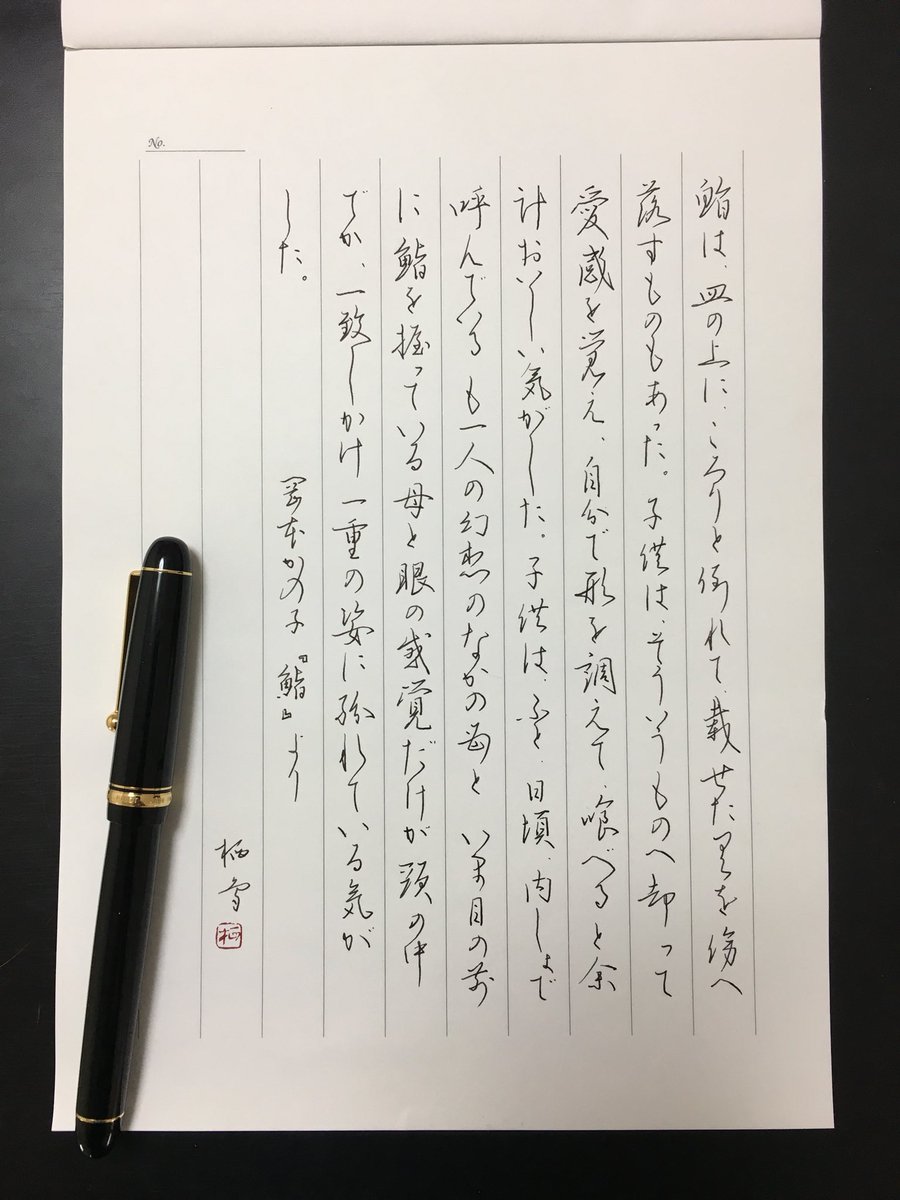 No.
鮨は、皿の上に、ころりと倒れて、載せた具を傍へ
落すものもあった。子供は、そういうものへ却って
愛感を覚え、自分で形を調えて、喰べると余
計おいしい気がした。子供は、ふと、日頃、内しょで
呼んでいるも一人の幻想のなかの母と いま目の前
に鮨を握っている母と眼の感覚だけが頭の中
でか、一致しかけ一重の姿に紛れている気が
した。
岡本かの子『鮨』より
栖雪
栖